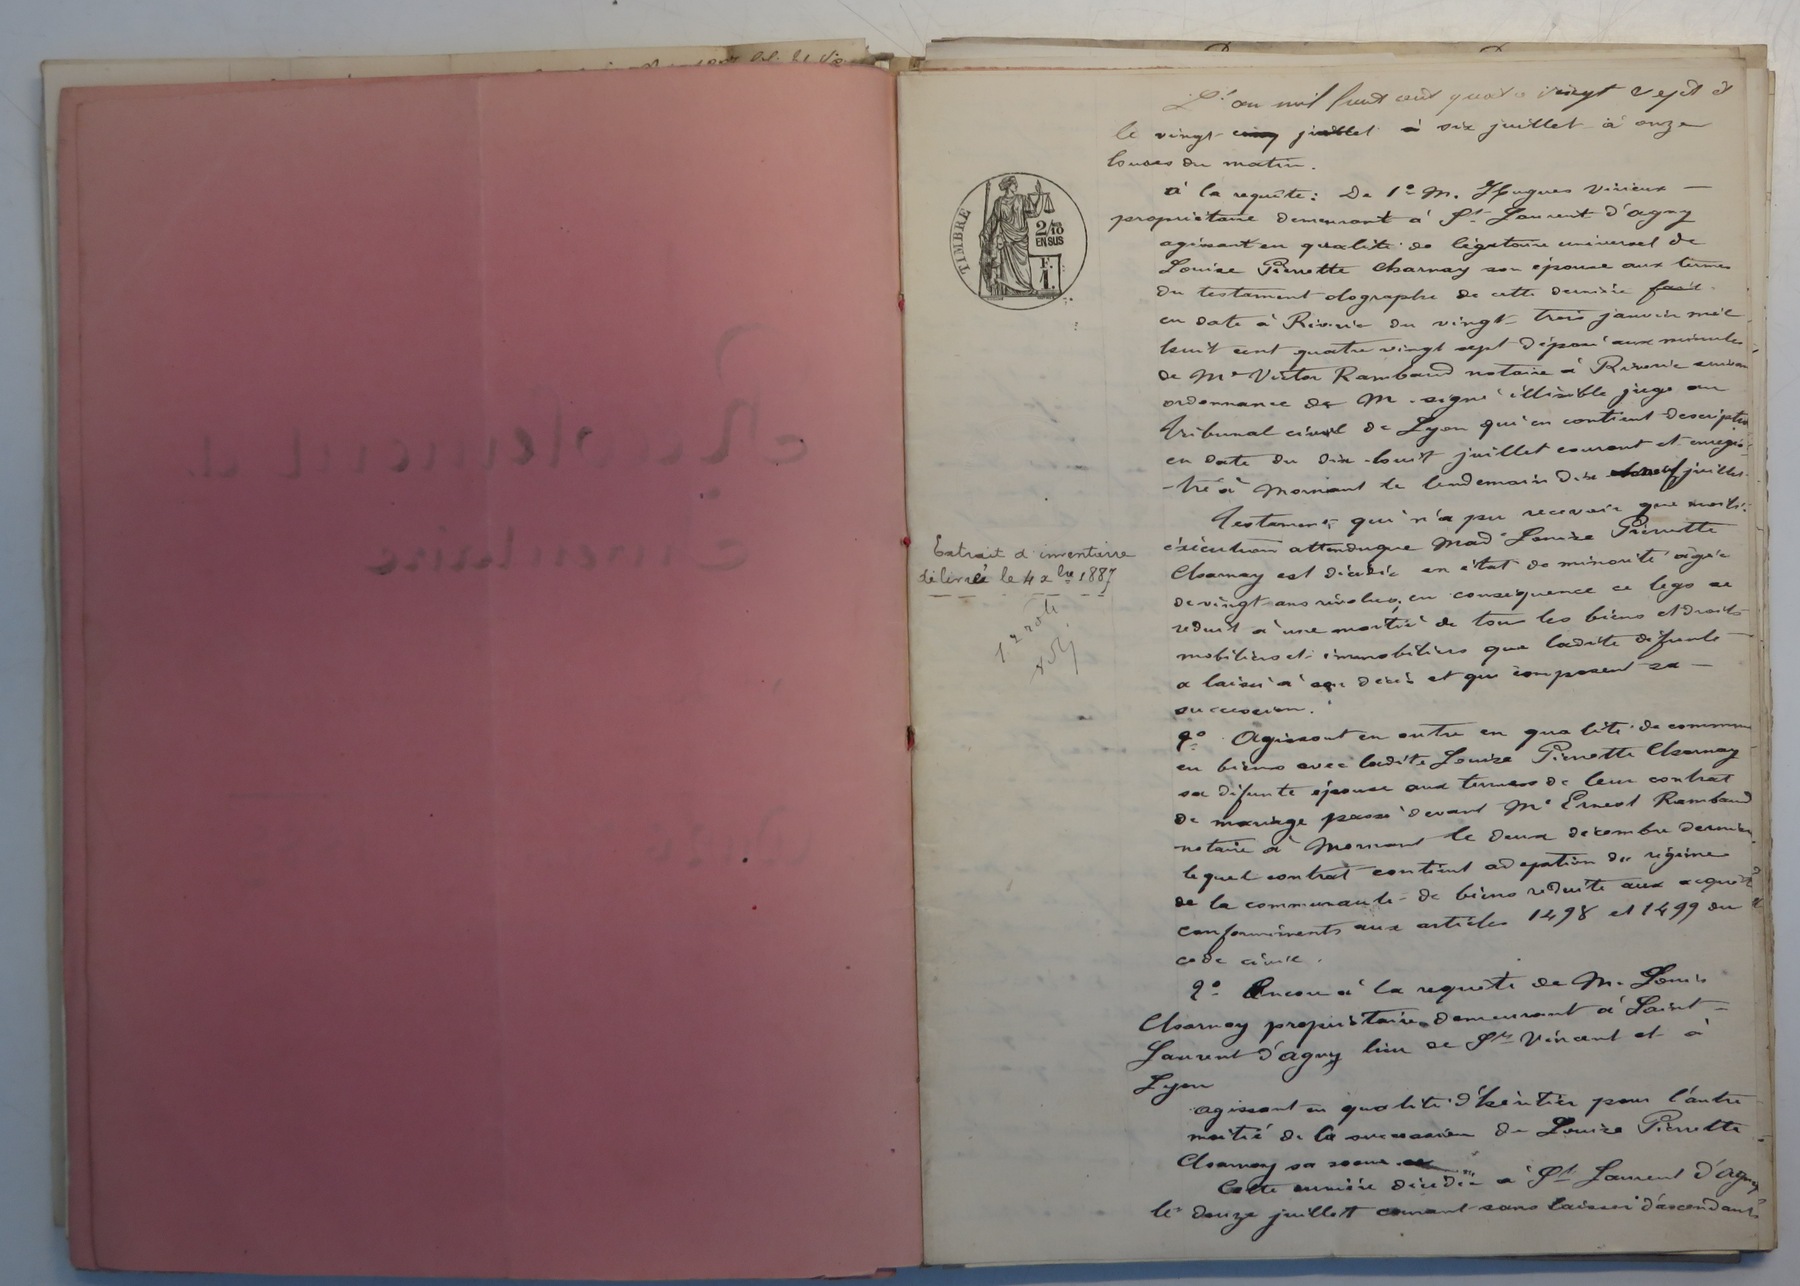 L'an mil huit cent quatre vingt sept &
le vingt cinq juillet à six juillet à onze
heures du matin.
à la requête: De 1° M. Hugues Virieux —
propriétaire demeurant à St Laurent d'agny
agissant en qualité de légataire universel de
Louise Pierrette Charnay son épouse aux termes
du testament olographe de cette dernière fait
en date à Riverie du vingt-trois janvier mil
huit cent quatre vingt sept déposé aux minutes
de Me Victor Rambaud notaire à Riverie suivant
ordonnance de M signé illisible juge au
Tribunal civil de Lyon qui en contient description
en date du dix-huit juillet courant et enregis-
-tré à Mornant le lendemain dix juillet
Testament qui n'a pu recevoir que moitié
éxécution attendu que Mad Louise Pierrette
Charnay est décédée en état de minorité âgée
de vingt ans révolus, en conséquence ce legs se
réduit à une moitié de tous les biens et droits
mobiliers et immobiliers que ladite défunte —
a laissé à son décès et qui composent sa —
succession.
2° Agissant en outre en qualité de commun
en biens avec ladite Louise Pierrette Charnay
sa défunte épouse aux termes de leur contrat
de mariage passé devant Me Ernest Rambaud
notaire à Mornant le deux décembre dernier
lequel contrat contient adoption du régime
de la communauté de biens réduite aux acquêts
conformément aux articles 1498 et 1499 du
code civil.
2° Encore à la requête de M. Louis
Charnay propriétaire demeurant à Saint-
Laurent d'agny lieu de St Vincent et à
Lyon
agissant en qualité d'héritier pour l'autre
moitié de la succession de Louise Pierrette
Charnay sa soeur
Cette dernière décédée à St Laurent d'Agny
le douze juillet courant sans laisser d'ascendants
TIMBRE
2/10
EN SUS
F.
1.
Extrait d'inventaire
délivré le 4 xbre 1887
Récolement d
Inventaire